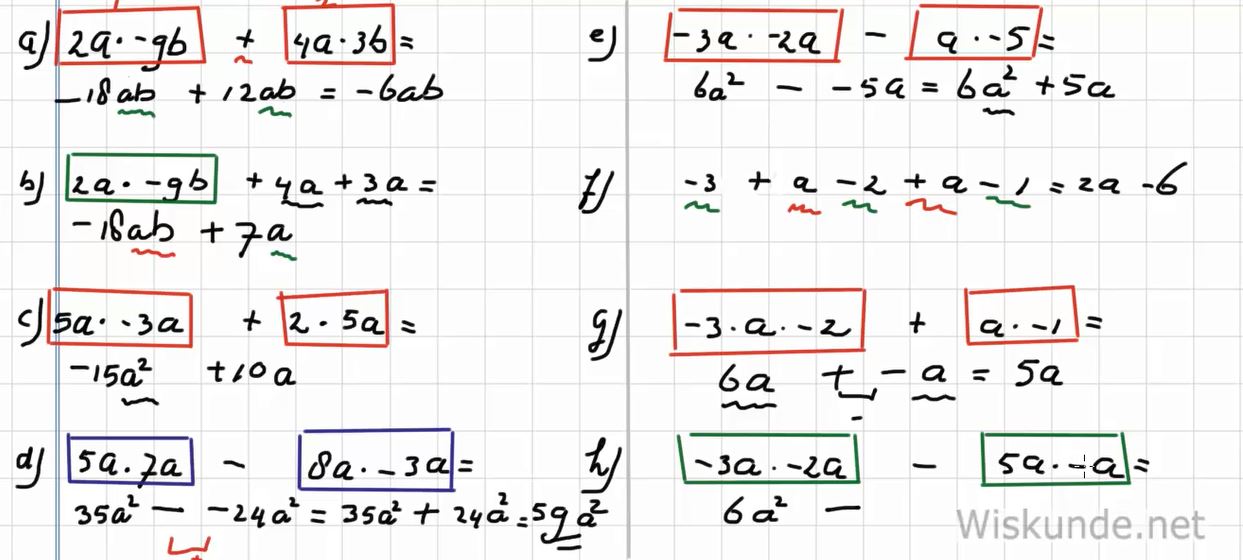 a) 2a · -9b + 4a · 3b =
-18ab + 12ab = -6ab
b) 2a · -9b + 4a + 3a =
-18ab + 7a
c) 5a · -3a + 2 · 5a =
-15a² + 10a
d) 5a · 7a - 8a · -3a =
35a² - -24a² = 35a² + 24a² = 59a²
+
e) -3a · -2a - a · -5 =
6a² - -5a = 6a² + 5a
f) -3 + a - 2 + a - 1 = 2a - 6
g) -3 · a · -2 + a · -1 =
6a + -a = 5a
-
h) -3a · -2a - 5a · -a =
6a² -
Wiskunde.net